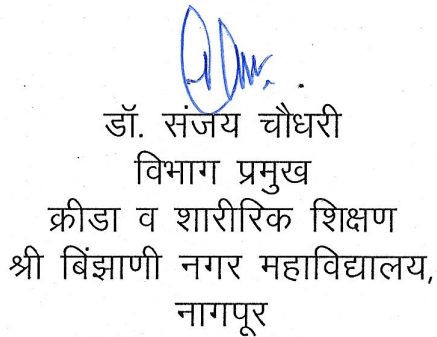 डॉ. संजय चौधरी
विभाग प्रमुख
क्रीडा व शारीरिक शिक्षण
श्री बिंझाणी नगर महाविद्यालय,
नागपूर